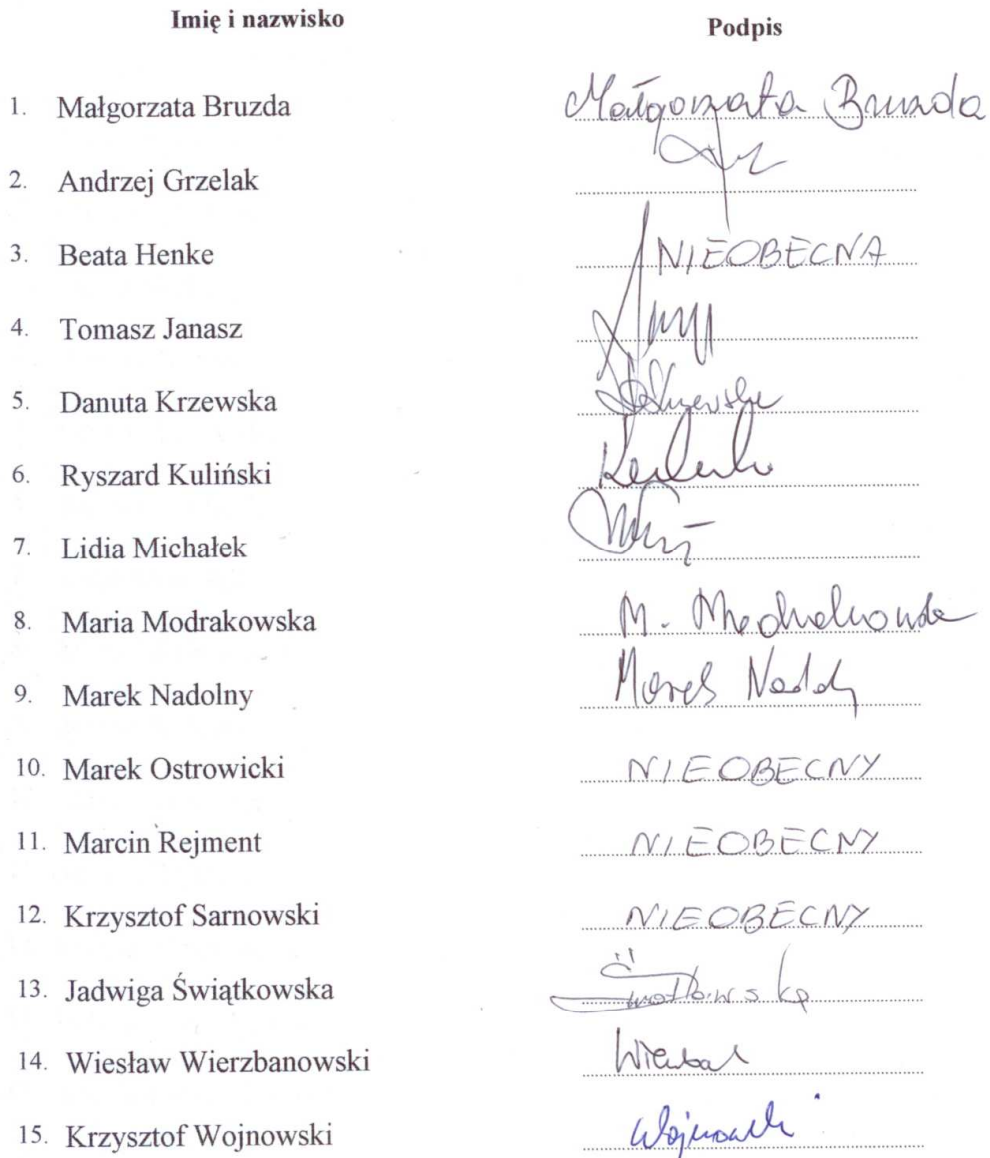 Imię i nazwisko Podpis
1. Małgorzata Bruzda Małgorzata Bruzda
2. Andrzej Grzelak
3. Beata Henke NIEOBECNA
4. Tomasz Janasz
5. Danuta Krzewska
6. Ryszard Kuliński
7. Lidia Michałek
8. Maria Modrakowska M.
9. Marek Nadolny Marek
10. Marek Ostrowicki NIEOBECNY
11. Marcin Rejment NIEOBECNY
12. Krzysztof Sarnowski NIEOBECNY
13. Jadwiga Świątkowska
14. Wiesław Wierzbanowski
15. Krzysztof Wojnowski